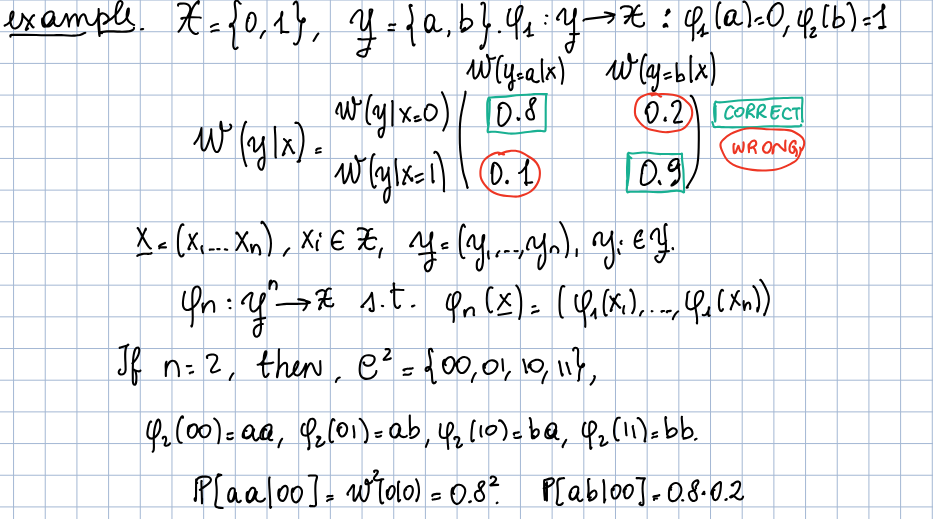 example. X = {0,1}, Y = {a,b}. φ₁ : Y → X : φ₁(a)=0, φ₂(b)=1
W(y=a|x) W(y=b|x)
W(y|x=0) 0.8 0.2 CORRECT
W(y|x) =
W(y|x=1) 0.1 0.9 WRONG
x = (x₁...xₙ), xᵢ ∈ X, y = (y₁,...,yₙ), yᵢ ∈ Y.
φₙ : Yⁿ → X s.t. φₙ(x) = (φ₁(x₁),...,φ₁(xₙ))
If n=2, then, C² = {00,01,10,11},
φ₂(00)=aa, φ₂(01)=ab, φ₂(10)=ba, φ₂(11)=bb.
P[aa|00] = W²(0|0) = 0.8². P[ab|00] = 0.8·0.2